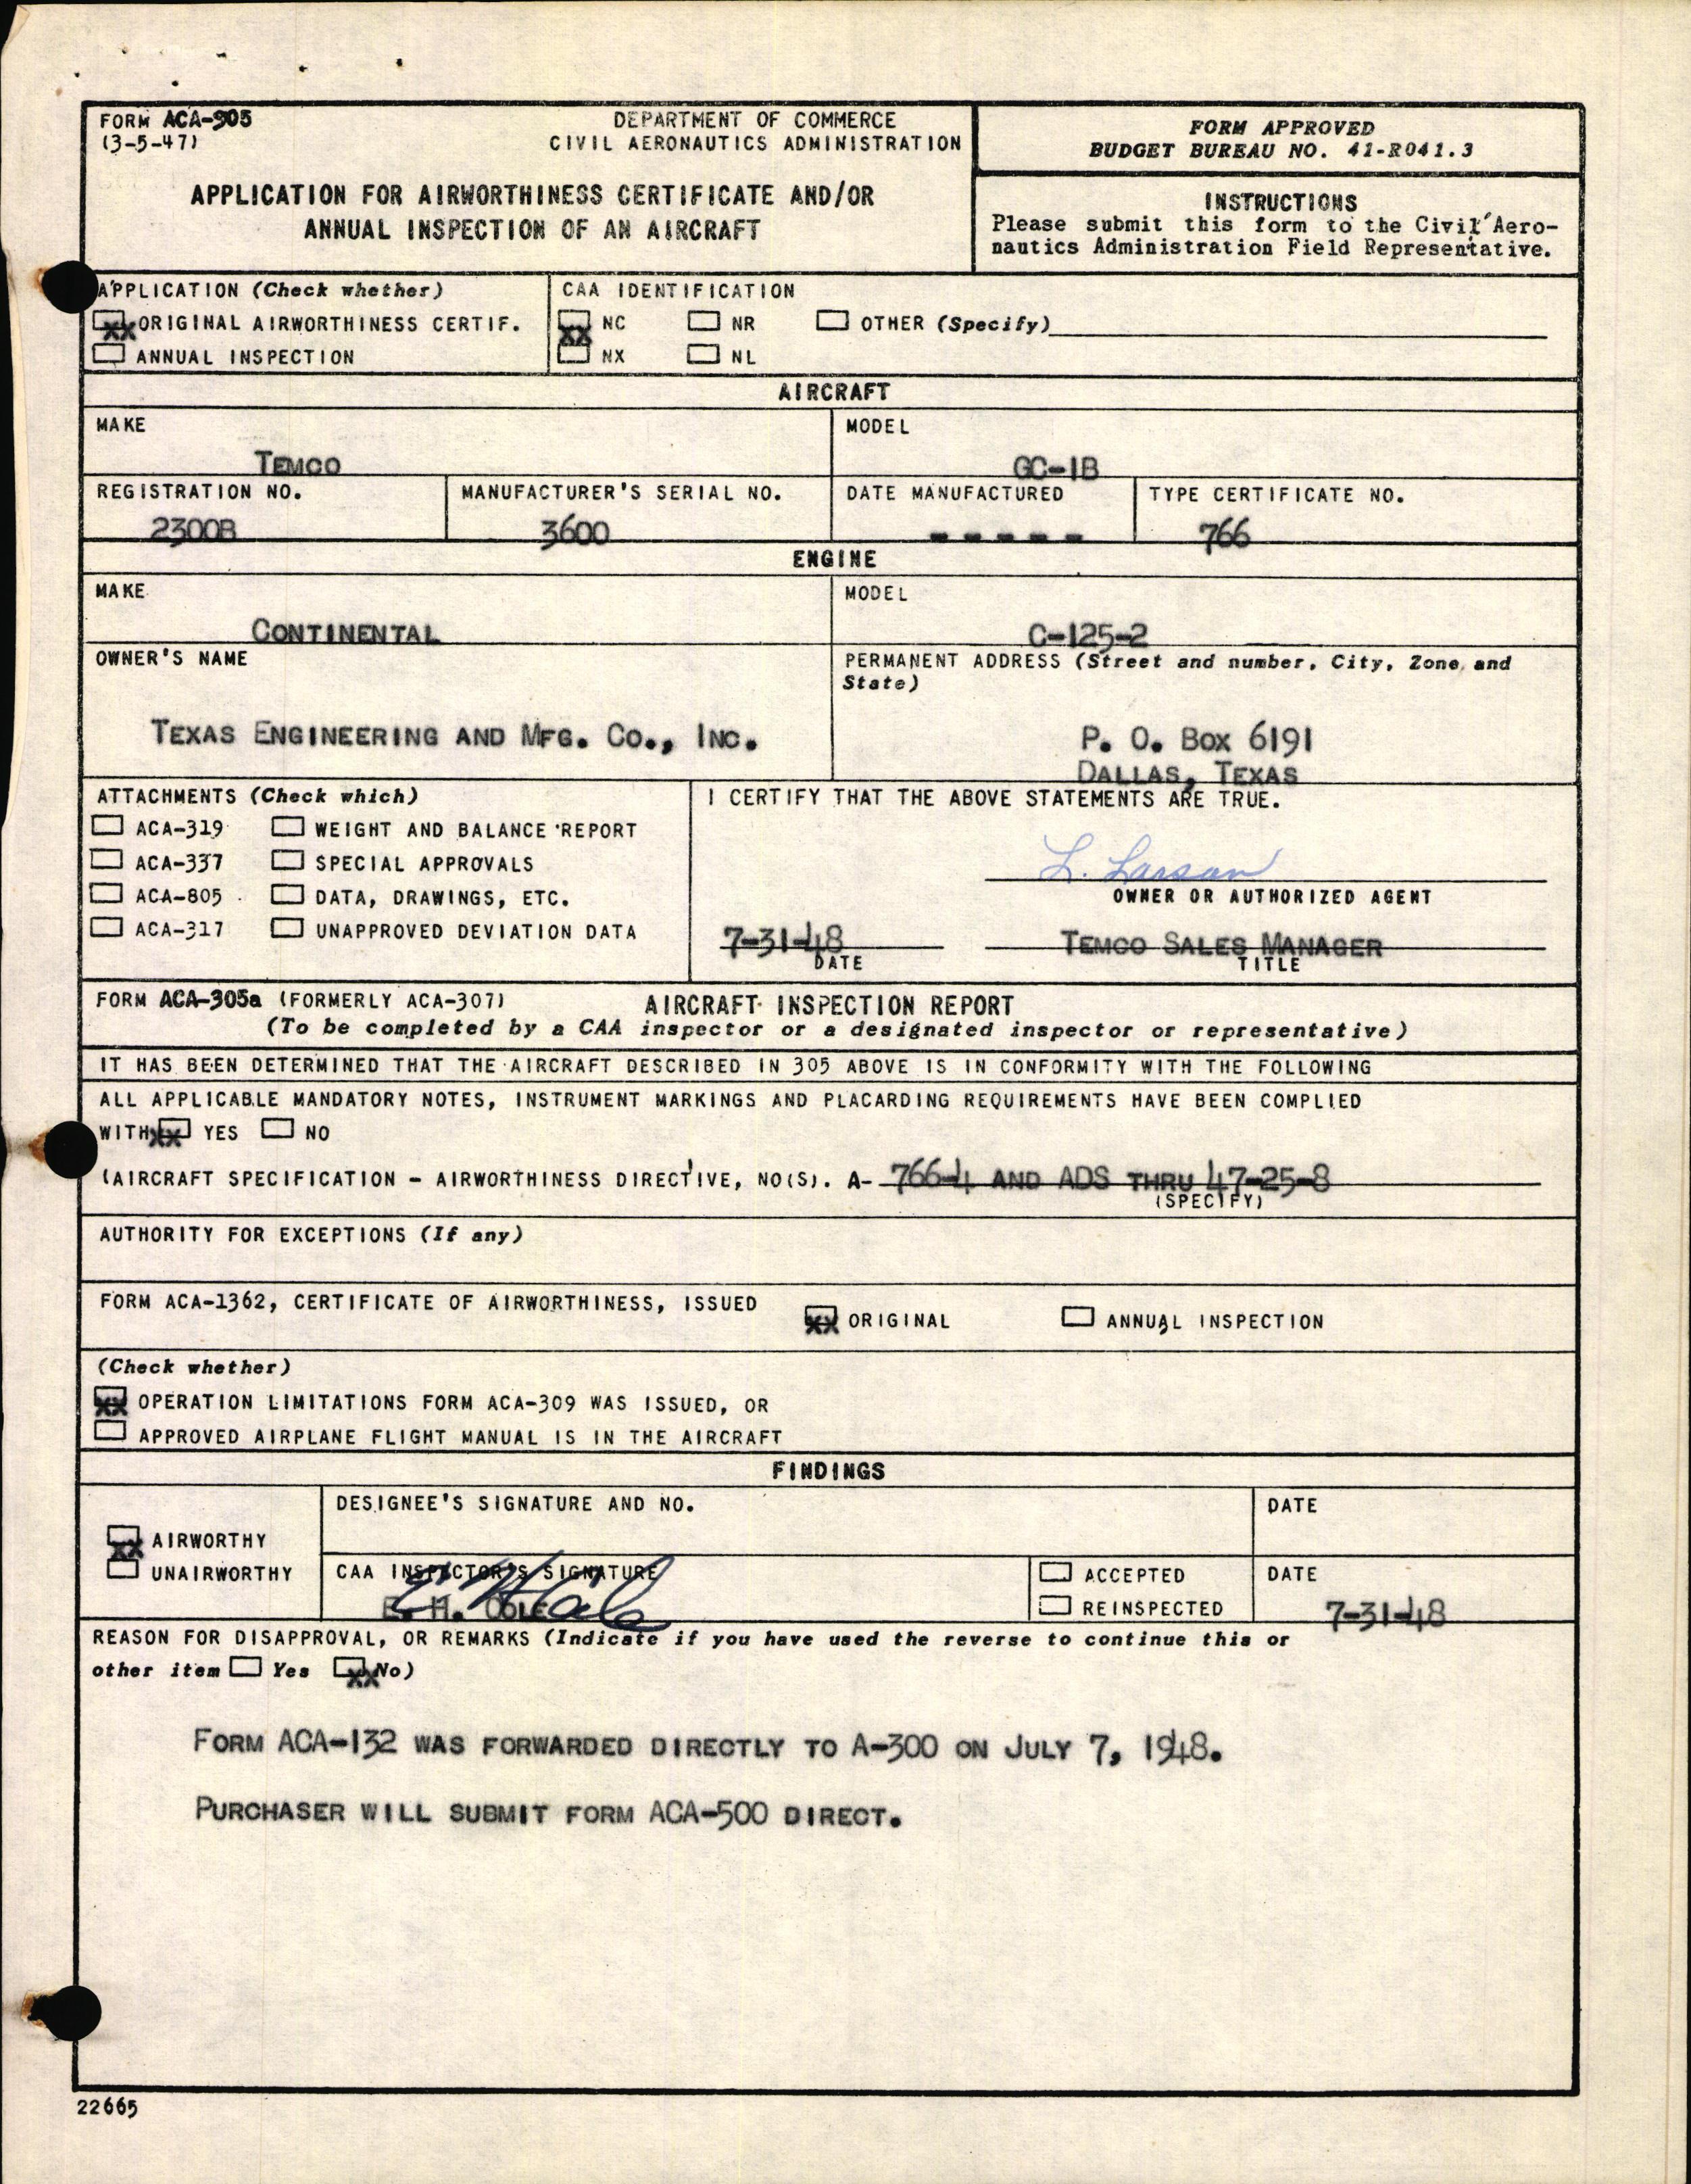 FORM ACA-305
(3-5-47)
DEPARTMENT OF COMMERCE
CIVIL AERONAUTICS ADMINISTRATION
APPLICATION FOR AIRWORTHINESS CERTIFICATE AND/OR
ANNUAL INSPECTION OF AN AIRCRAFT
FORM APPROVED
BUDGET BUREAU NO. 41-R041.3
INSTRUCTIONS
Please submit this form to the Civil Aero-
nautics Administration Field Representative.
APPLICATION (Check whether)
XX ORIGINAL AIRWORTHINESS CERTIF.
ANNUAL INSPECTION
CAA IDENTIFICATION
XX NC NR OTHER (Specify)
NX NL
AIRCRAFT
MAKE
TEMCO
MODEL
GC-1B
REGISTRATION NO.
2300B
MANUFACTURER'S SERIAL NO.
3600
DATE MANUFACTURED
- - - - -
TYPE CERTIFICATE NO.
766
ENGINE
MAKE
CONTINENTAL
MODEL
C-125-2
OWNER'S NAME
TEXAS ENGINEERING AND MFG. CO., INC.
PERMANENT ADDRESS (Street and number, City, Zone and
State)
P. O. BOX 6191
DALLAS, TEXAS
ATTACHMENTS (Check which)
ACA-319 WEIGHT AND BALANCE REPORT
ACA-337 SPECIAL APPROVALS
ACA-805 DATA, DRAWINGS, ETC.
ACA-317 UNAPPROVED DEVIATION DATA
I CERTIFY THAT THE ABOVE STATEMENTS ARE TRUE.
L. Larson
OWNER OR AUTHORIZED AGENT
7-31-48 TEMCO SALES MANAGER
DATE TITLE
FORM ACA-305a (FORMERLY ACA-307) AIRCRAFT INSPECTION REPORT
(To be completed by a CAA inspector or a designated inspector or representative)
IT HAS BEEN DETERMINED THAT THE AIRCRAFT DESCRIBED IN 305 ABOVE IS IN CONFORMITY WITH THE FOLLOWING
ALL APPLICABLE MANDATORY NOTES, INSTRUMENT MARKINGS AND PLACARDING REQUIREMENTS HAVE BEEN COMPLIED
WITH XX YES NO
(AIRCRAFT SPECIFICATION - AIRWORTHINESS DIRECTIVE, NO(S). A- 766-4 AND ADS THRU 47-25-8
(SPECIFY)
AUTHORITY FOR EXCEPTIONS (If any)
FORM ACA-1362, CERTIFICATE OF AIRWORTHINESS, ISSUED XX ORIGINAL ANNUAL INSPECTION
(Check whether)
XX OPERATION LIMITATIONS FORM ACA-309 WAS ISSUED, OR
APPROVED AIRPLANE FLIGHT MANUAL IS IN THE AIRCRAFT
FINDINGS
XX AIRWORTHY
UNAIRWORTHY
DESIGNEE'S SIGNATURE AND NO.
DATE
CAA INSPECTOR'S SIGNATURE
E. H. COLE
ACCEPTED
REINSPECTED
DATE
7-31-48
REASON FOR DISAPPROVAL, OR REMARKS (Indicate if you have used the reverse to continue this or
other item Yes XX No)
FORM ACA-132 WAS FORWARDED DIRECTLY TO A-300 ON JULY 7, 1948.
PURCHASER WILL SUBMIT FORM ACA-500 DIRECT.
22665